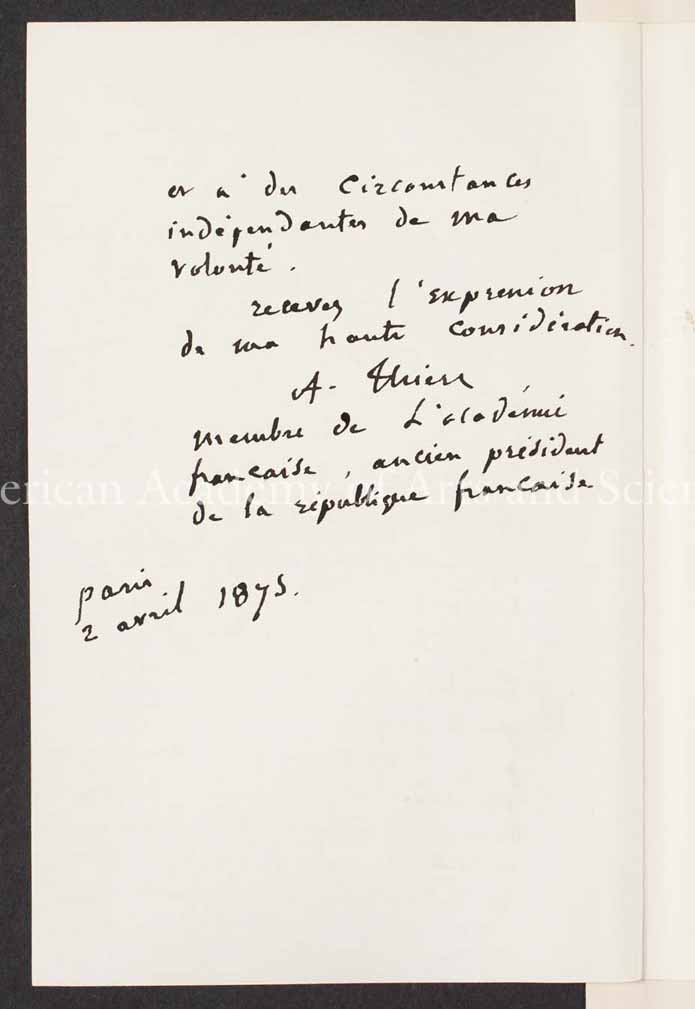 et à des circonstances
indépendantes de ma
volonté.
recevez l'expression
de ma haute considération.
A. Thiers
membre de L'académie
française, ancien président
de la république française
paris
2 avril 1875.
erican Academy of Arts and Scien